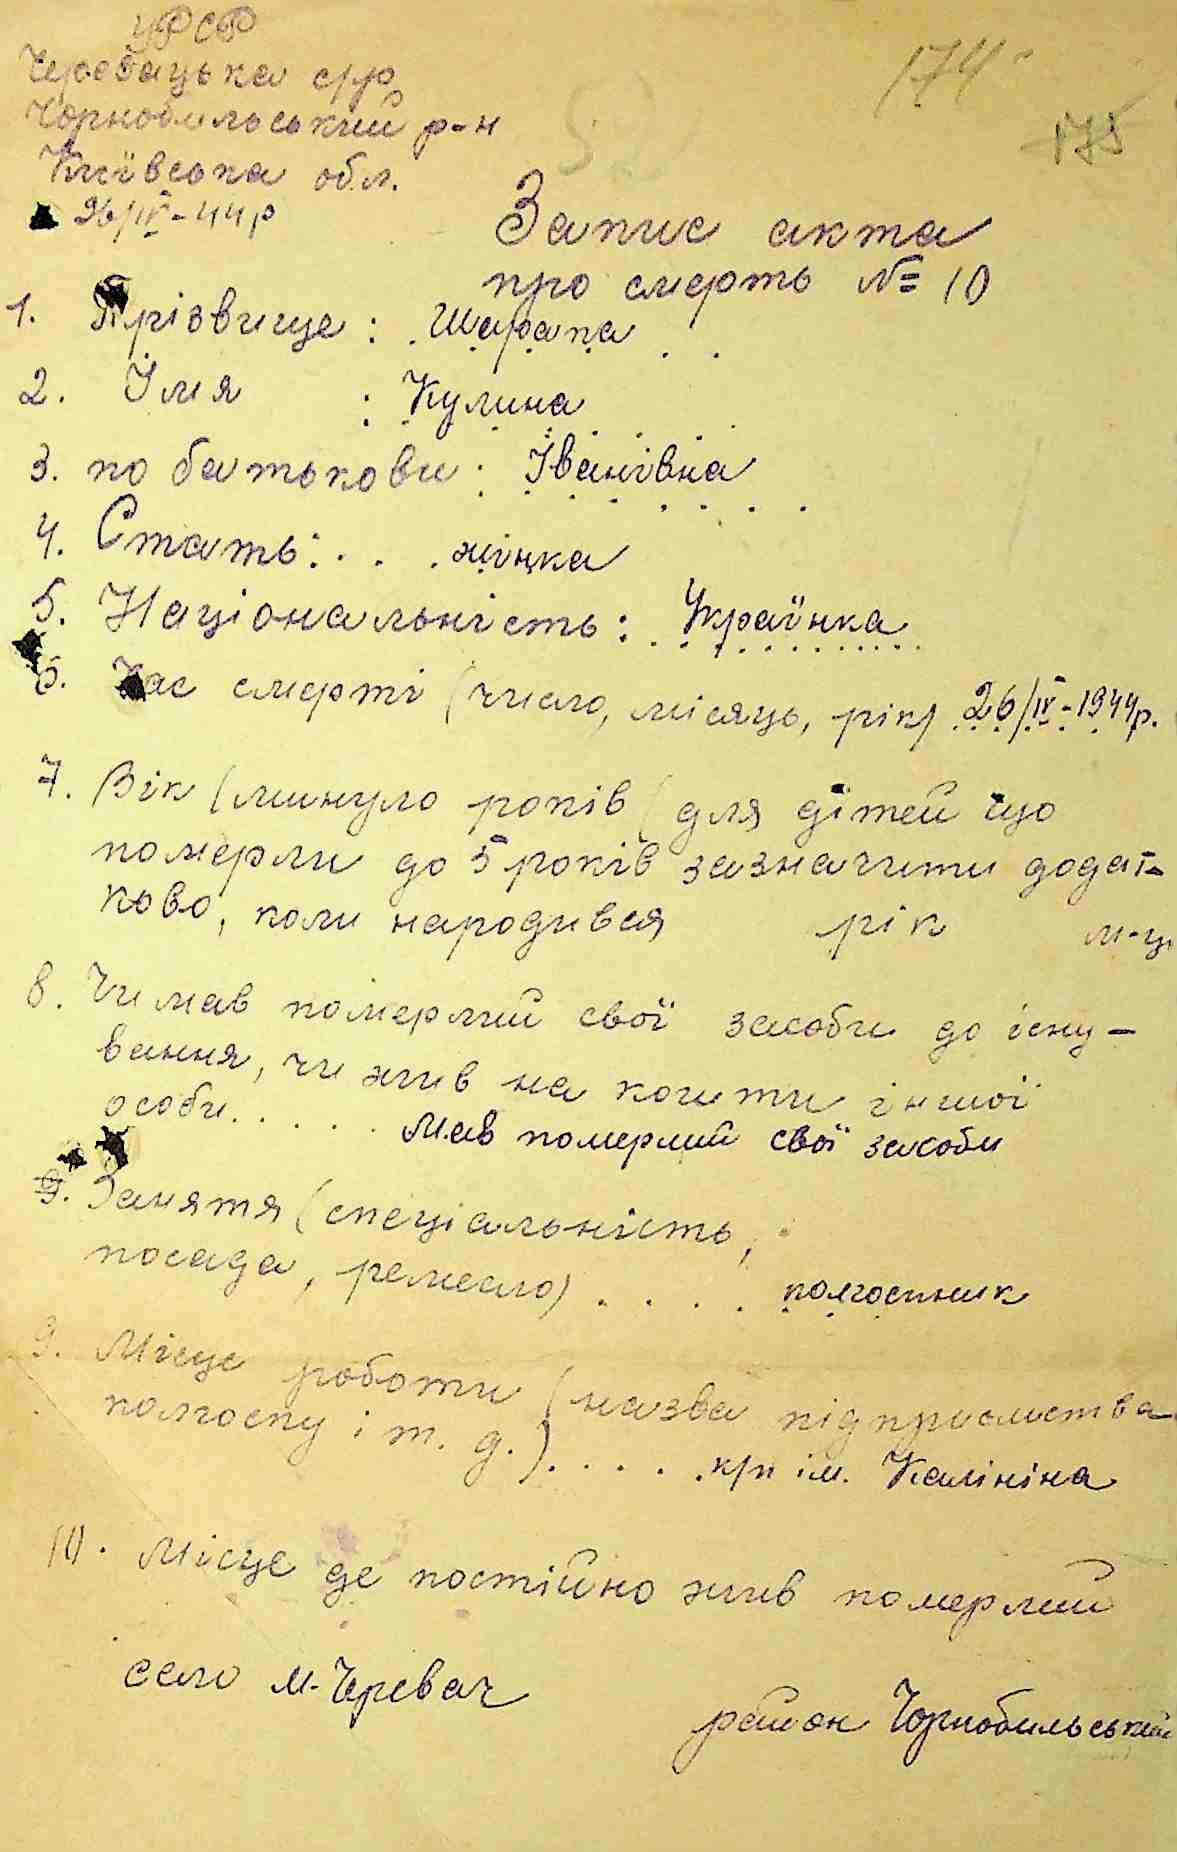 УРСР
Черевацька с/р
Чорнобильський р-н
Київська обл.
26/IV-44р
174
175
Запис акта
про смерть № 10
1. Прізвище: Шарапа
2. Імя : Кулина
3. по батькови: Іванівна
4. Стать: . . . жінка
5. Національність: Українка
6. Час смерті (число, місяць, рік) 26/IV-1944р.
7. Вік (минуло років (для дітей що
померли до 5 років зазначити додат-
ково, коли народився рік м-ць
8. Чи мав померлий свої засоби до існу-
вання, чи жив на кошти іншої
особи . . . . . Мав померлий свої засоби
9. Заняття (спеціальність,
посада, ремесло) . . . . колгоспник
9. Місце роботи (назва підприємства
колгоспу і т. д.) . . . . . к/п ім. Калініна
10. Місце де постійно жив померлий
село М-Черевач
район Чорнобильський